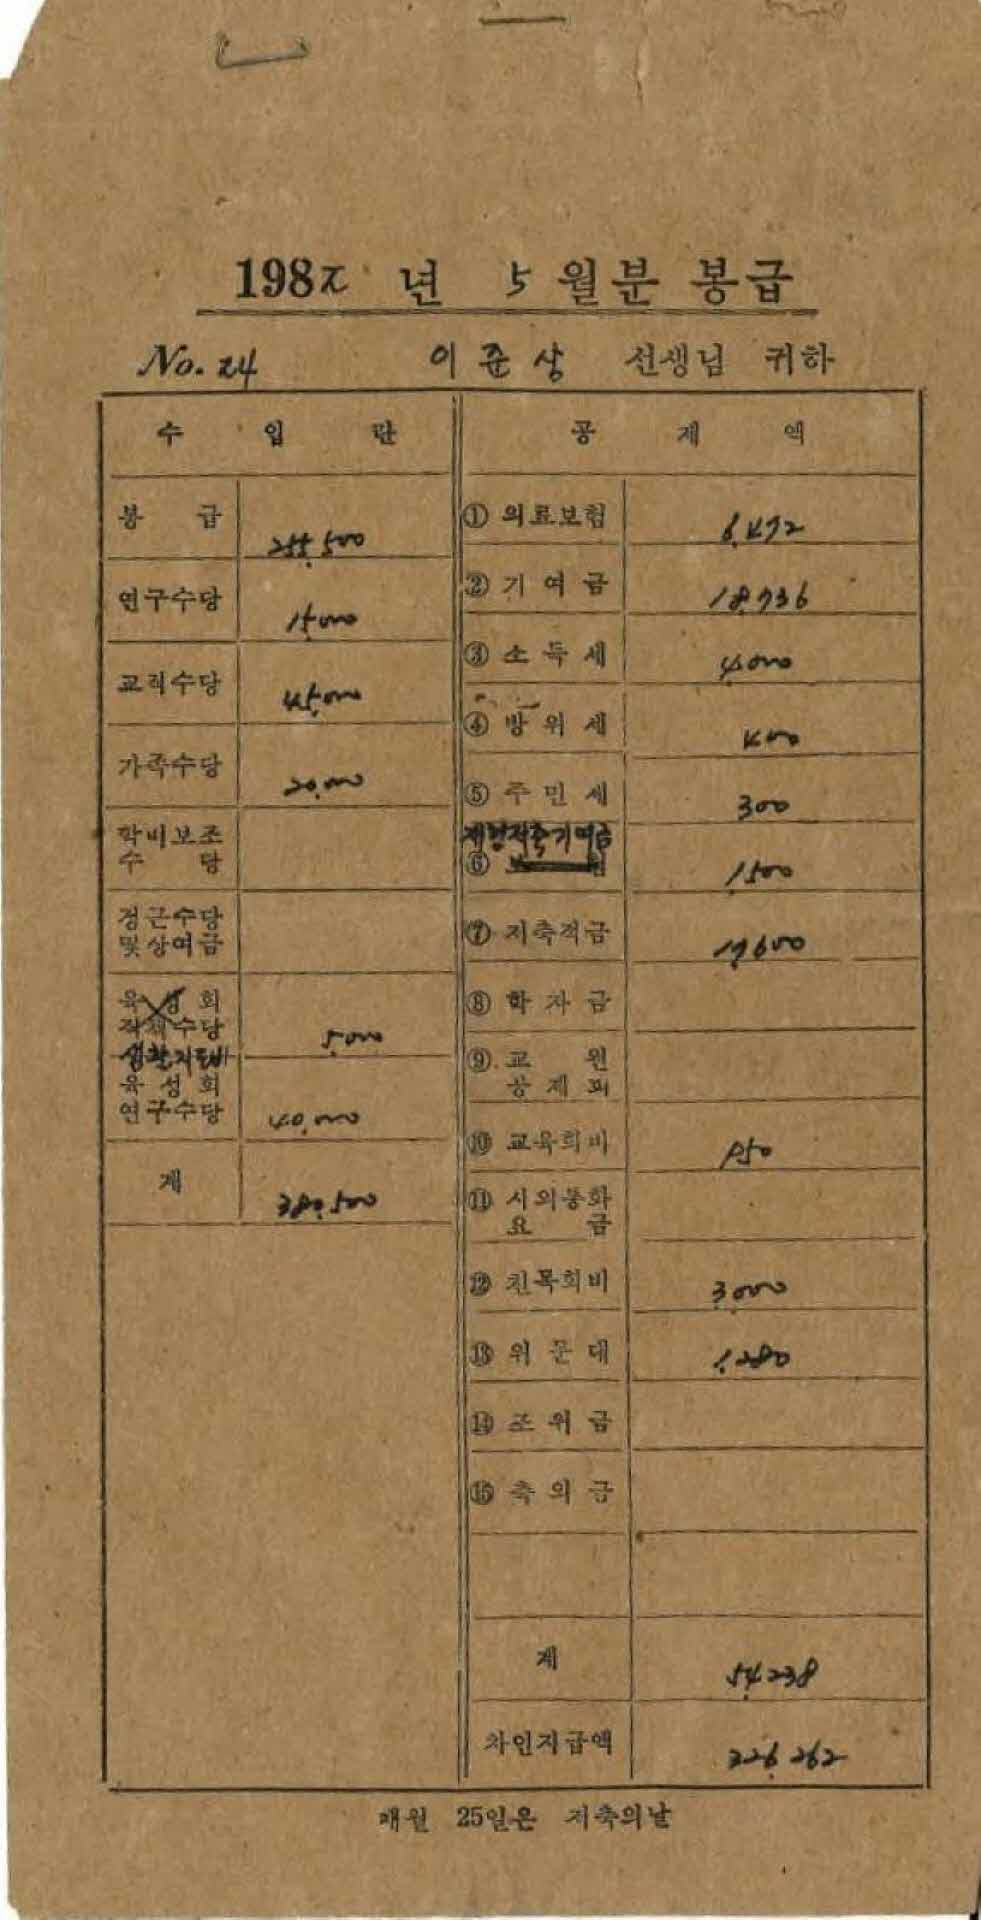 1982 년 5 월분 봉급
No. 24 이준상 선생님 귀하
수 입 란
공 제 액
봉 급 255,500
연구수당 15,000
교직수당 45,000
가족수당 20,000
학비보조
수 당
정근수당
및상여금
육성회
직책수당 5,000
생활지도비
육성회
연구수당 40,000
계 380,500
① 의료보험 6,472
② 기여금 18,736
③ 소득세 4,000
④ 방위세 400
⑤ 주민세 300
재형저축기여금
⑥ 1,500
⑦ 저축적금 17,600
⑧ 학자금
⑨ 교 원
공제회
⑩ 교육회비 950
⑪ 시외통화
요 금
⑫ 친목회비 3,000
⑬ 위문대 1,280
⑭ 조위금
⑮ 축의금
계 54,238
차인지급액 326,262
매월 25일은 저축의날